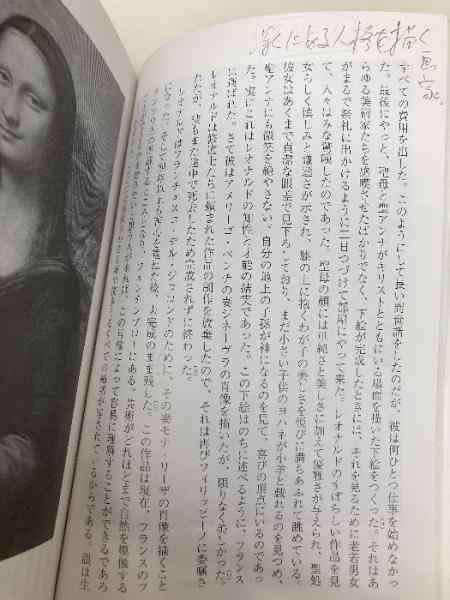 深くにある人格を描く
画家。
すべての費用を出した。このようにして長い間世話をしたのだが、彼は何ひとつ仕事を始めなかっ
た。最後にやっと、聖母と聖アンナがキリストとともにいる場面を描いた下絵をつくった。それはあ
らゆる美術家たちを感嘆させたばかりでなく、下絵が完成したときには、それを見るために老若男女
がまるで祭礼に出かけるように二日つづけて部屋にやって来た。レオナルドのすばらしい作品を見
て、人々はみな驚嘆したのであった。聖母の顔には単純さと美しさに加えて優雅さが与えられ、聖処
女らしく慎しみと謙遜さが示され、膝の上に抱くわが子の美しさを悦びに満ちあふれて眺めている。
彼女はあくまで貞潔な眼差で見下ろしており、まだ小さい子供のヨハネが小羊と戯れるのを見つめ、
聖アンナにも微笑を絶やさない。自分の地上の子孫が神になるのを見て、喜びの頂点にいるのであっ
た。実にこれはレオナルドの知性と才能の結実であった。この下絵はのちに述べるように、フランス
に運ばれた。さて彼はアメリーゴ・ベンチの妻ジネーヴラの肖像を描いたが、限りなく美しかった。
レオナルドは修道士たちに頼まれた作品の制作を放棄したので、それは再びフィリッピーノに委嘱さ
れたが、彼もまた途中で死去したため完成されずに終わった。
レオナルドはフランチェスコ・デル・ジョコンドのために、その妻モナ・リーザの肖像を描くこと
になった。そして四年以上も苦心を重ねた後、未完成のまま残した。この作品は現在、フランスのフ
ランソワ王の所蔵するところとなり、フォンテンブローにある。芸術がどれほどまで自然を模倣する
この肖像によって容易に理解することができるであろ
すべての細部が写されているからである。眼は生